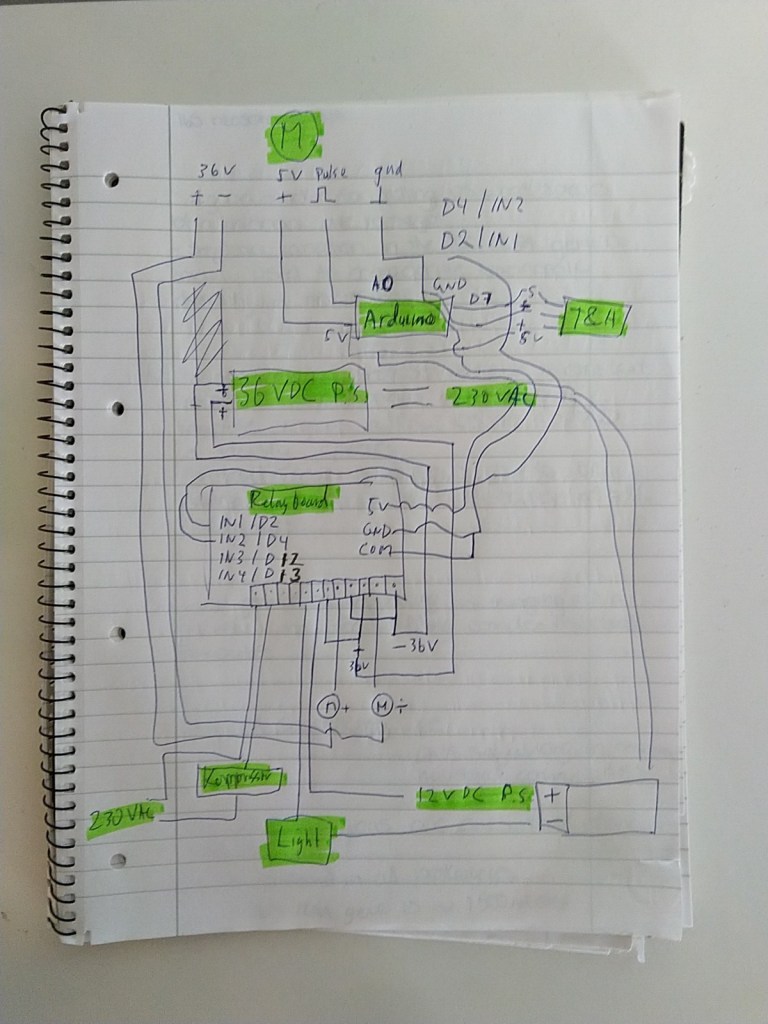 M
36V 5V pulse gnd
+ - +
D4/IN2
D2/IN1
A0 GND D7
Arduino
T&H
5V
+
5V
36 VDC P.S
+
+
230VAC
Relayboard
5V
IN1/D2
GND
IN2/D4
COM
IN3/D12
IN4/D13
-36V
36V
M +
M ÷
Kompressor
12VDC P.S
+
-
230VAC
Light